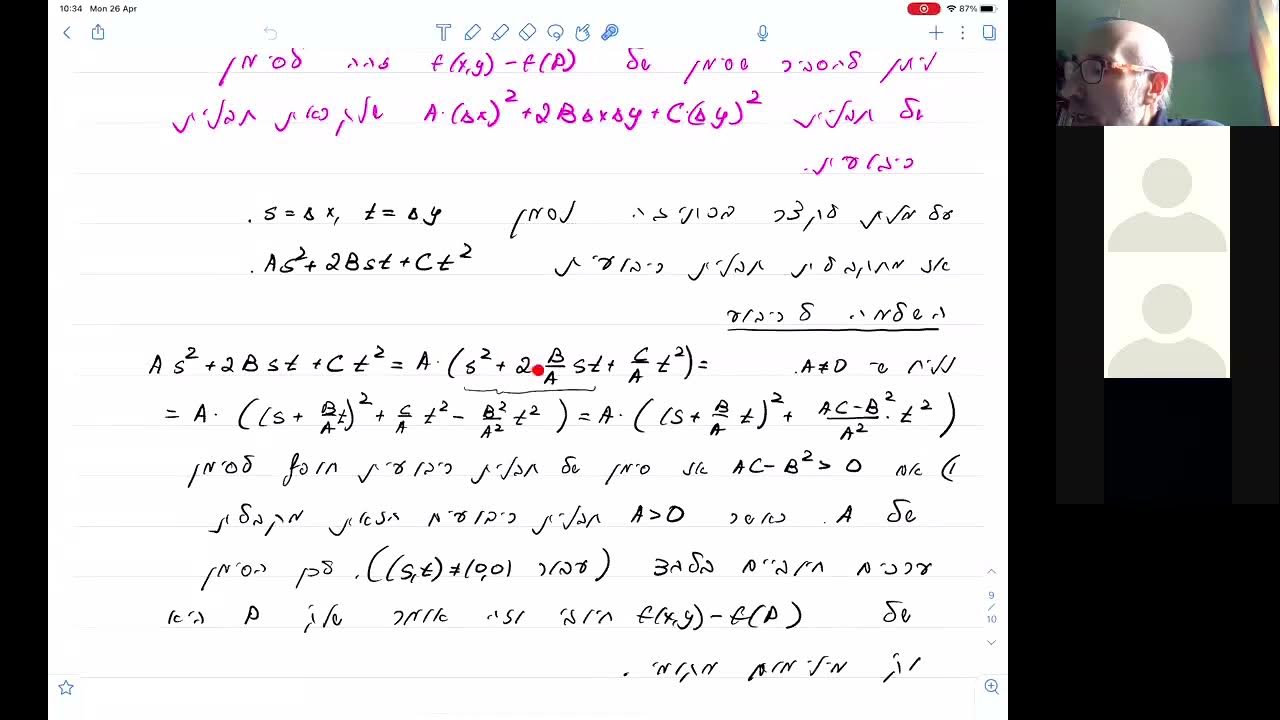 10:34 Mon 26 Apr
87%
ניתן להסביר שסימן של f(x,y)-f(P) זהה לסימן
של תבנית A·(Δx)²+2BΔxΔy+C·(Δy)² שנקראת תבנית
ריבועית.
על מנת לקצר בכתיבה נסמן s=Δx, t=Δy.
אז מתקבלת תבנית ריבועית As²+2Bst+Ct².
השלמה לריבוע
נניח ש A≠0. As²+2Bst+Ct²=A·(s²+2·B/A st+C/A t²)=
=A·((s+B/A t)²+C/A t²-B²/A² t²)=A·((s+B/A t)²+(AC-B²)/A²·t²)
1) אם AC-B²>0 אז סימן של תבנית ריבועית הופך לסימן
של A. כאשר A>0 תבנית ריבועית הזאת מקבלת
ערכים חיוביים בלבד (עבור (s,t)≠(0,0)). לכן הסימן
של f(x,y)-f(P) חיובי וזה אומר שנק' P היא
נק' מינימום מקומי.
9
/
10